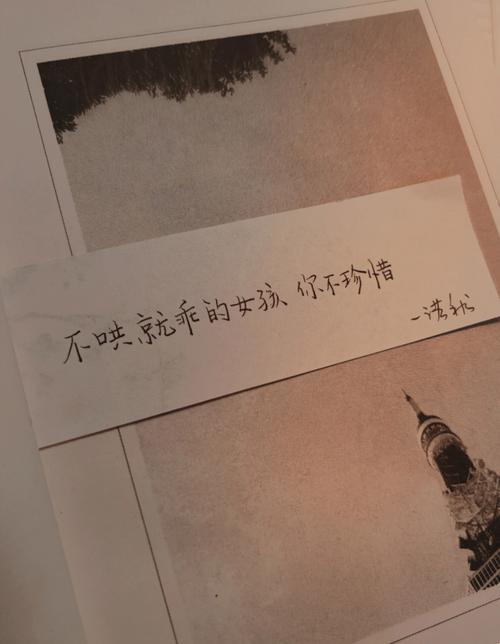 不哄就乖的女孩、你不珍惜
一诺秋